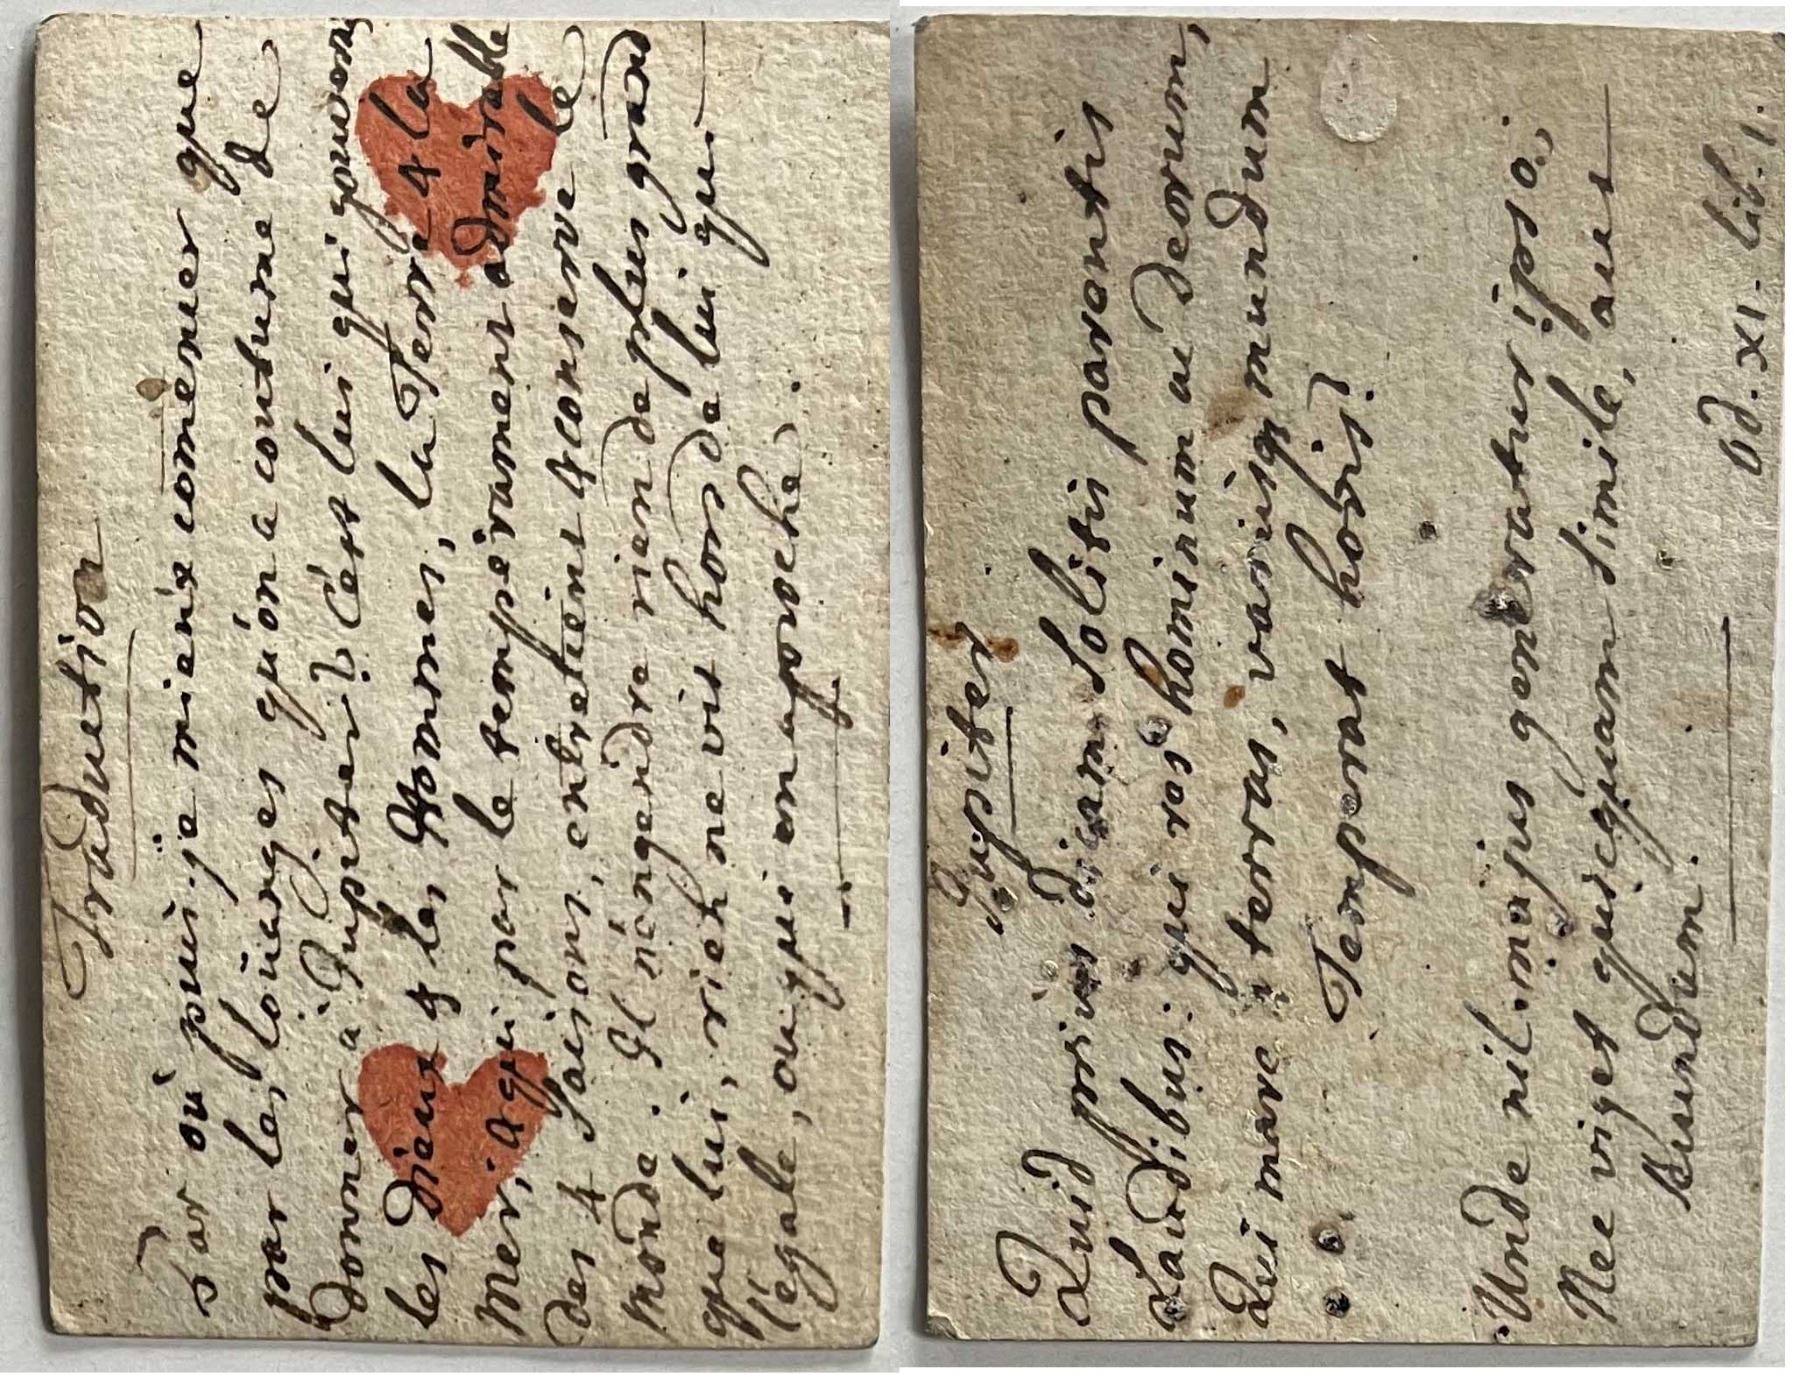 Traduction
Par où puis-je mieux comencer que
par les loüanges qu'on a coutume de
donner à Jupiter? C'est lui qui gouverne
les Dieux & les Hommes, la Terre & la
Mer; & qui par le tempérament admirable
des 4 saisons, entretient & conserve le
monde. Il n'engendre rien de plus grand
que lui, rien ne vit hors de lui qui
l'égale, ou qui en aproche.
Jupiter
Quid prius dicam solitis parentis
Laudibus: qui res hominum ac deorum,
Qui mare & terras, variisq mundum
Temperat horis?
Unde nil majus generatur ipso,
Nec viget quicquam simile, aut
secundum.
Od. XI. lib. 1.